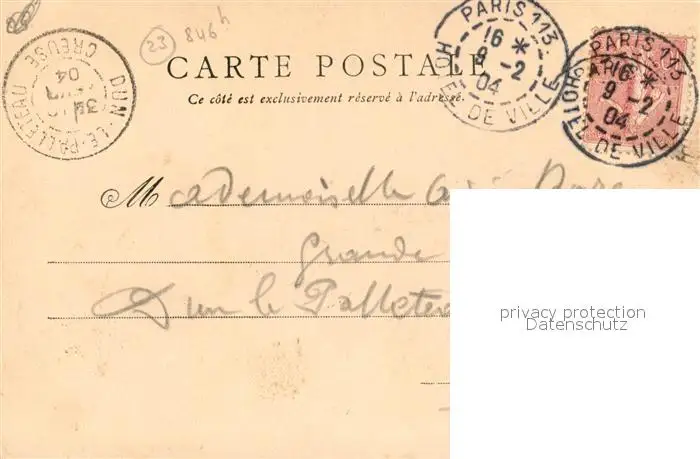 23 846h
PARIS 113
16 *
9 -2
04
HOTEL DE VILLE
PARIS 113
16 *
9 -2
04
HOTEL DE VILLE
DUN-LE-PALLETEAU
CREUSE
3E
04
CARTE POSTALE
Ce côté est exclusivement réservé à l'adresse.
Mademoiselle
Grande
Dun le Palletea
privacy protection
Datenschutz